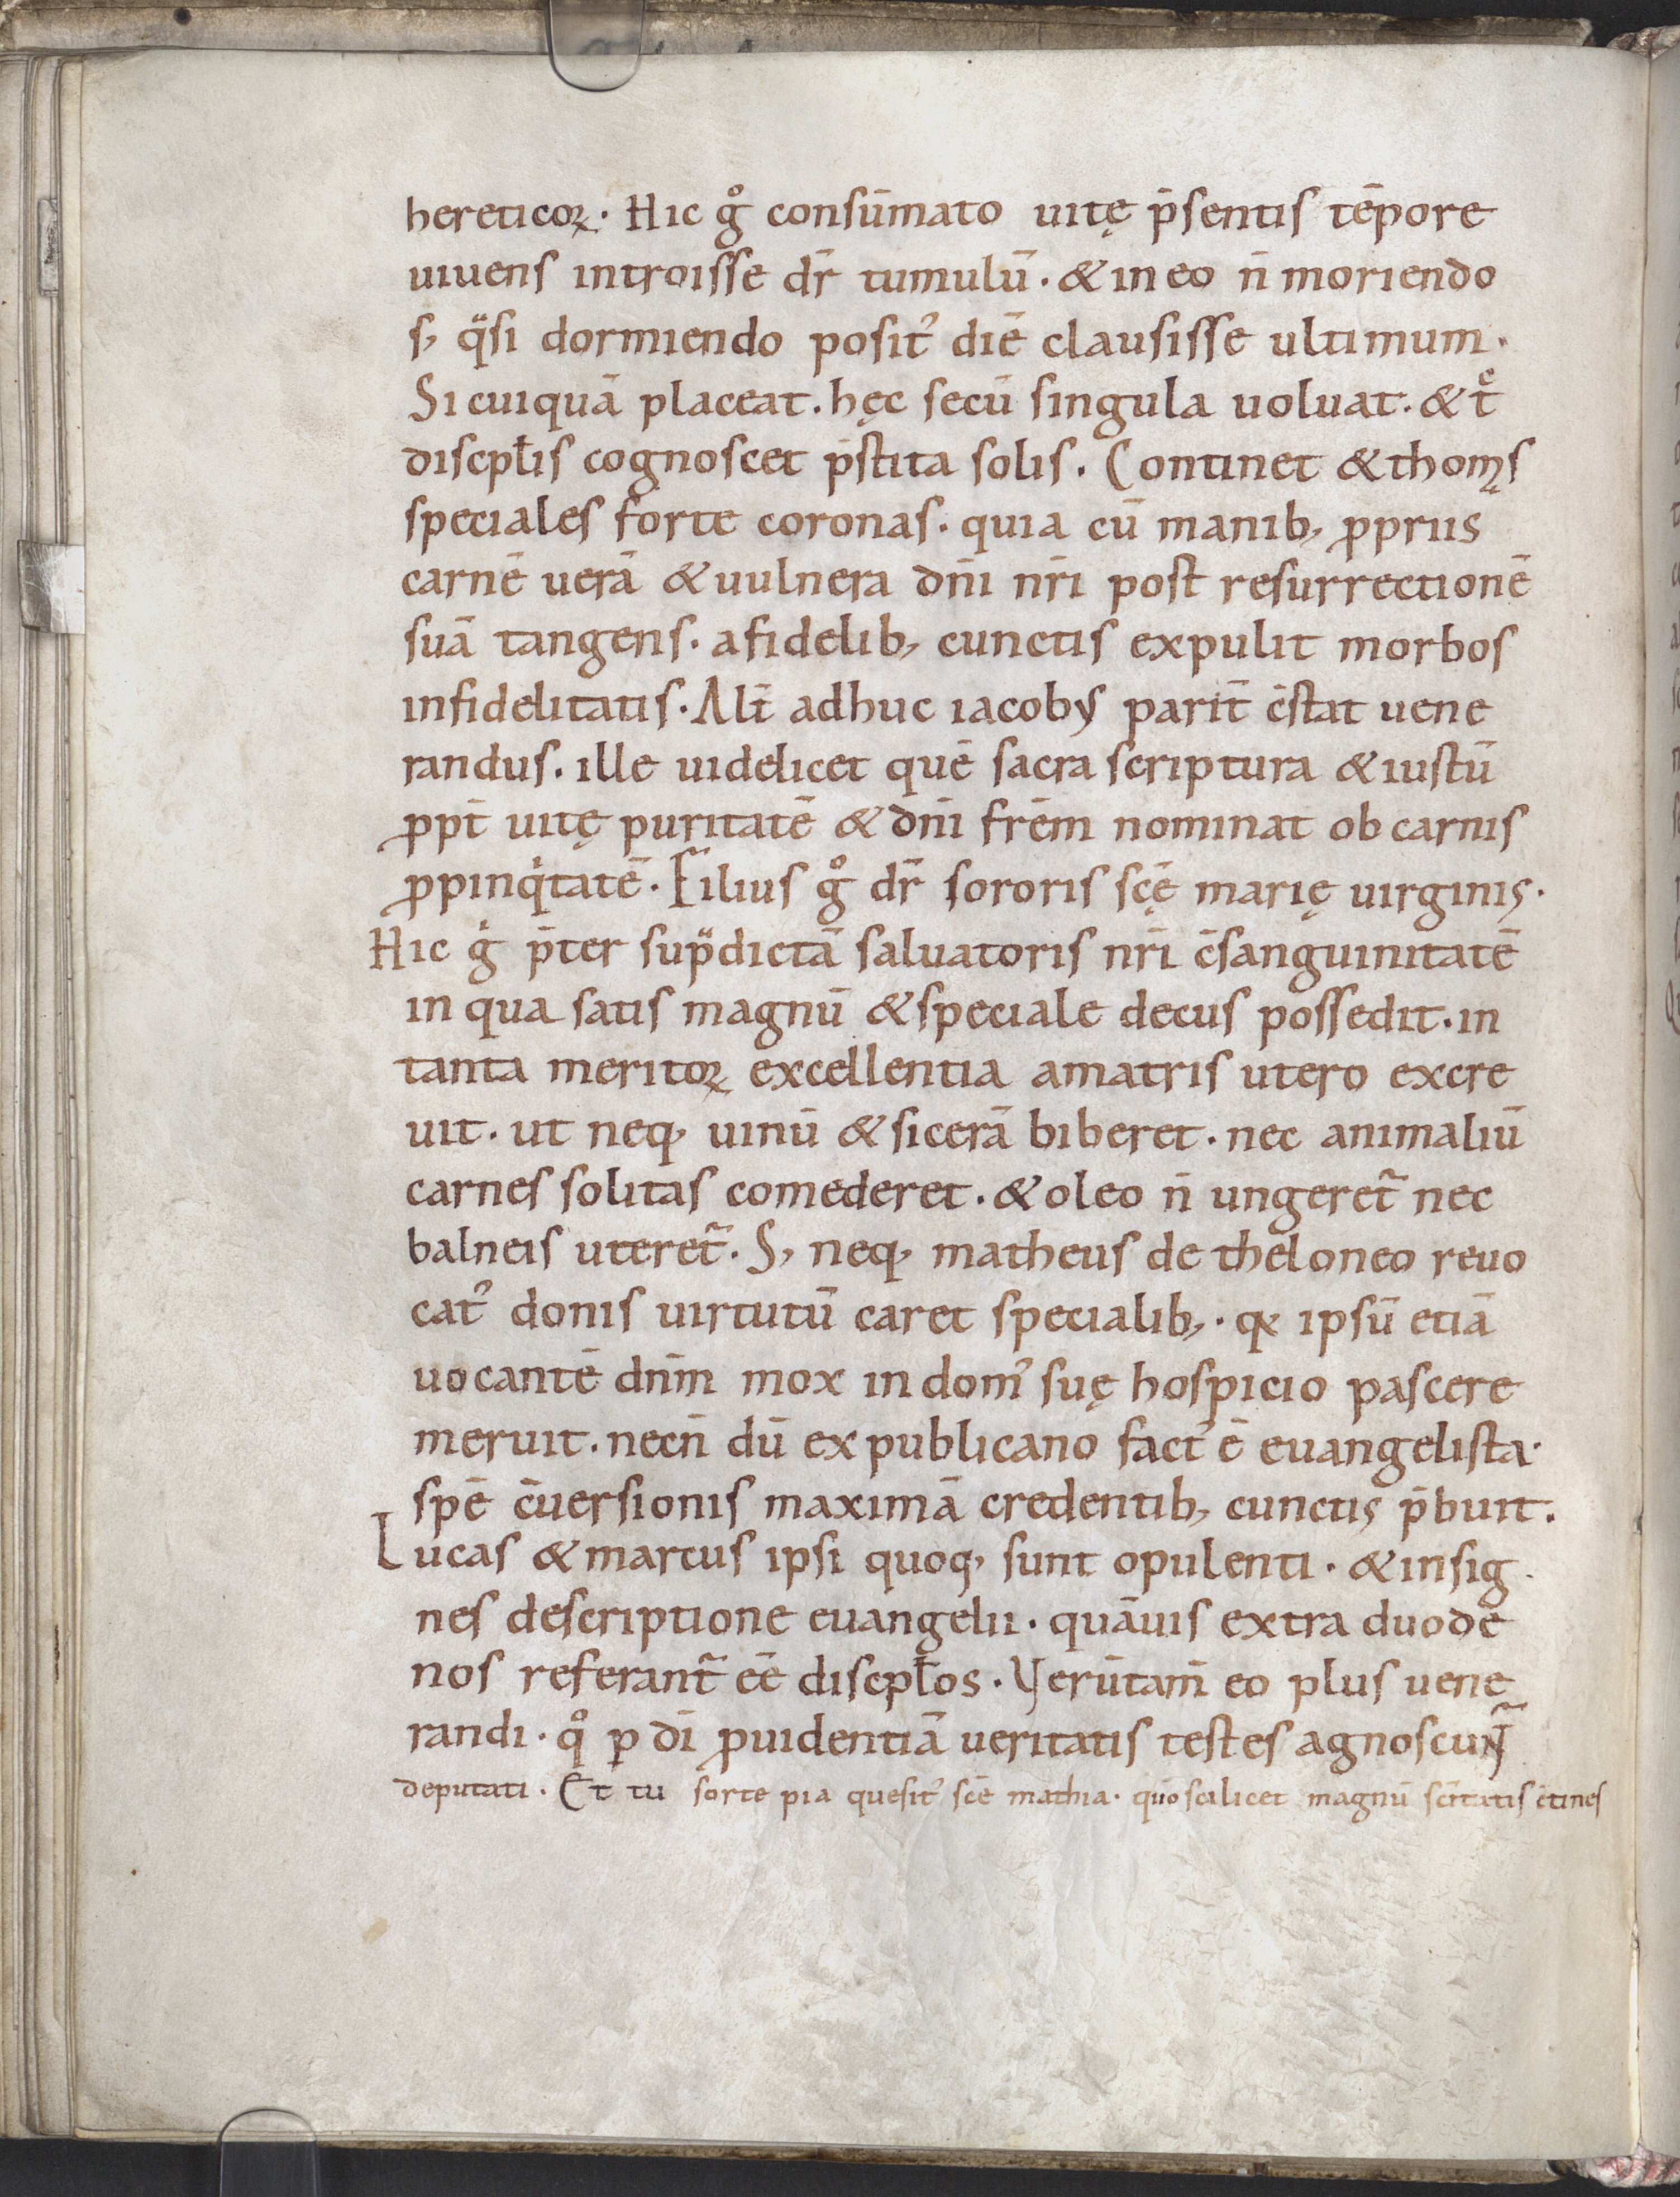 hereticoꝝ. Hic gͦ consūmato uitę p̄sentis tēpore
uiuens introisse dr̄ tumulū. & in eo n̄ moriendo
s, qͣsi dormiendo posit᾿ diē clausisse ultimum.
Si cuiquā placeat. hęc secū singula uoluat. & tͤ
discipl̄is cognoscet p̄stita solis. Continet & thomąs
speciales forte coronas. quia cū manib, ꝓpriis
carnē uerā & uulnera dn̄i nr̄i post resurrectionē
suā tangens. a fidelib, cunctis expulit morbos
infidelitatis. Alt̄ adhuc iacobus parit̄ c̄stat uene
randus. ille uidelicet quē sacra scriptura & iustū
ꝓpt̄ uitę puritatē & dn̄i fr̄em nominat ob carnis
ꝓpinqͥtatē. Filius gͦ dr̄ sororis scę̄ marię uirginis.
Hic gͥ p̄ter supͣdictā saluatoris nr̄i c̄sanguinitatē
in qua satis magnū & speciale decus possedit. in
tanta meritoꝝ excellentia a matris utero excre
uit. ut neq, uinū & sicerā biberet. nec animaliū
carnes solitas comederet. & oleo n̄ ungeret᷑ nec
balneis uteret᷑. S, neq, matheus de theloneo reuo
cat᾿ donis uirtutū caret specialib,. qꝛ ipsū etiā
uocantē dn̄m mox in dom᾿ suę hospicio pascere
meruit. necn̄ dū ex publicano fact᾿ ē euangelista.
spē c̄uersionis maximā credentib, cunctis p̄buit.
Lucas & marcus ipsi quoq, sunt opulenti. & insig
nes descriptione euangelii. quāuis extra duodē
nos referant᷑ eē discipl̄os. Uerūtam̄ eo plus uene
randi. qͦ ꝑ dī ꝓuidentiā ueritatis testes agnoscunt᷑
deputati. Et tu sorte pia quesit᾿ scē mathia. quo scilicet magnū sc̄itatis c̄tines